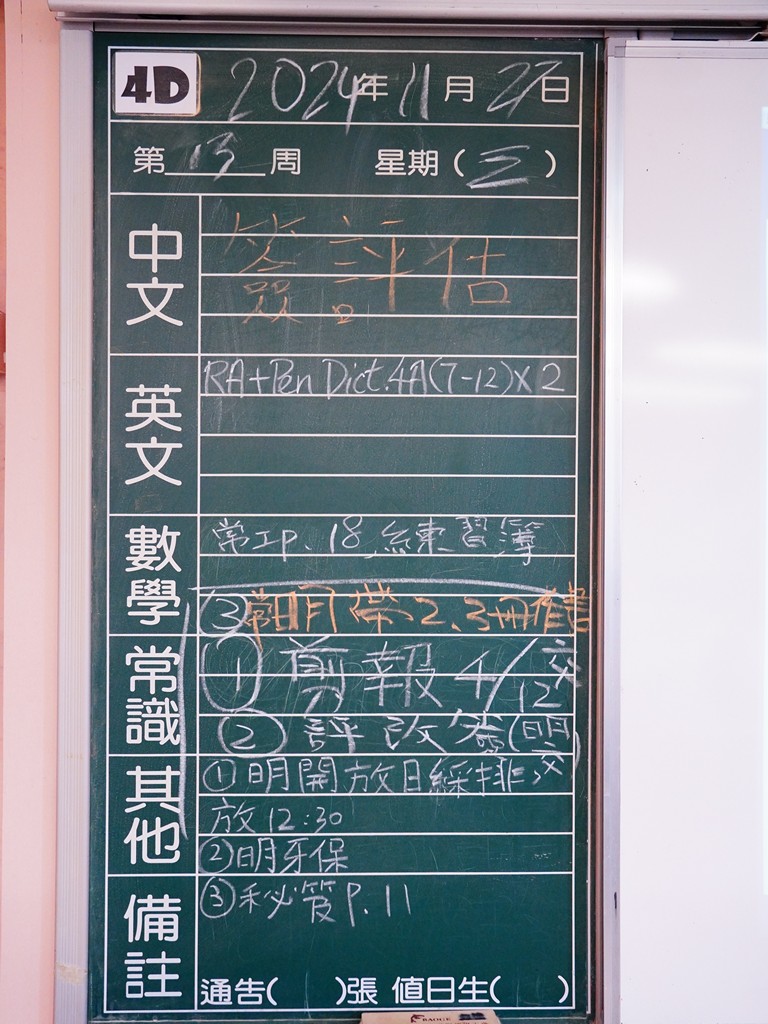 4D 2024年11月27日
第13周 星期(三)
中文 簽評估
英文 RA+Pen Dict.4A(7-12)X2
數學 常工P.18 練習簿
③常明帶2、3冊書
常識 ①剪報4/12交
②評改簽(明交)
其他 ①明開放日綵排
放12:30
②明牙保
備註 ③秘簽P.11
通告( )張 值日生( )